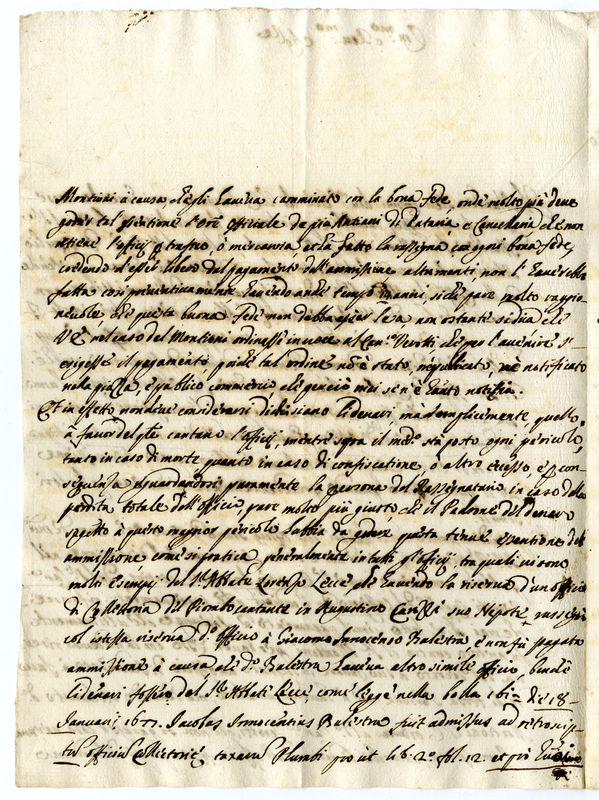 Montioni à causa che egli haveva camminato con la bona fede, onde molto più deve
goder tal esentione l'ore officiale da più Antiani di Dataria e Cancellaria che non
ritiene l'officij ò trafico, ò mercantia, et hà fatto la rassegna con ogni bona fede,
credendo d'esser libero dal pagamento dell'ammissione altrimenti non l'haverebbe
fatta così preventivamente havendo anche tempo inanzi, si che pare molto raggio
nevole che questa buona fede non debba esser lesa non ostante si dica che
nel caso del Montioni ordinasse in voce al Verotti che per l'avenire s'
esigesse il pagamento, poiche tal ordine non è stato, nè publicato, nè notificato
nella piazza, e publico commercio che perciò mai se n'è havuto notitia.
Et in effetto non deve considerarsi di chi siano li denari, ma semplicemente, quello
à favor del quale cantano l'officij, mentre sopra il med.º stà posto ogni pericolo,
tanto in caso di morte quanto in caso di confiscatione, ò altro eccesso, e per con
seguenza riguardandosi puramente la persona del Rassegnatario in caso della
perdita totale dell'Officio, pare molto più giusto che il Padrone del denaro
sogetto à questo maggior pericolo habbia da godere questa tenue esentione del
ammissione come si pratica generalmente in tutti gl'officij, tra quali vi sono
molti esempij del S.r Abbate Lorenzo Lecce che havendo la riserva d'un officio
di Collettoria del Piombo cantante in Augustino suo Nepote, rassegnò
col istessa riserva d.º officio à Giacomo Innocenzo Balestra, e non fù pagata
ammissione à causa che d.º Balestra haveva altro simile officio, benche
li denari fossero del S.r Abbate Lecce, come si legge nella bolla dè 18
Januarij 1677. Jacobus Innocentius Balestra fuit admissus ad retroscrip-
tum officium Collectorie taxarum Plumbi prout lib. 2.º fol. 12. et pro